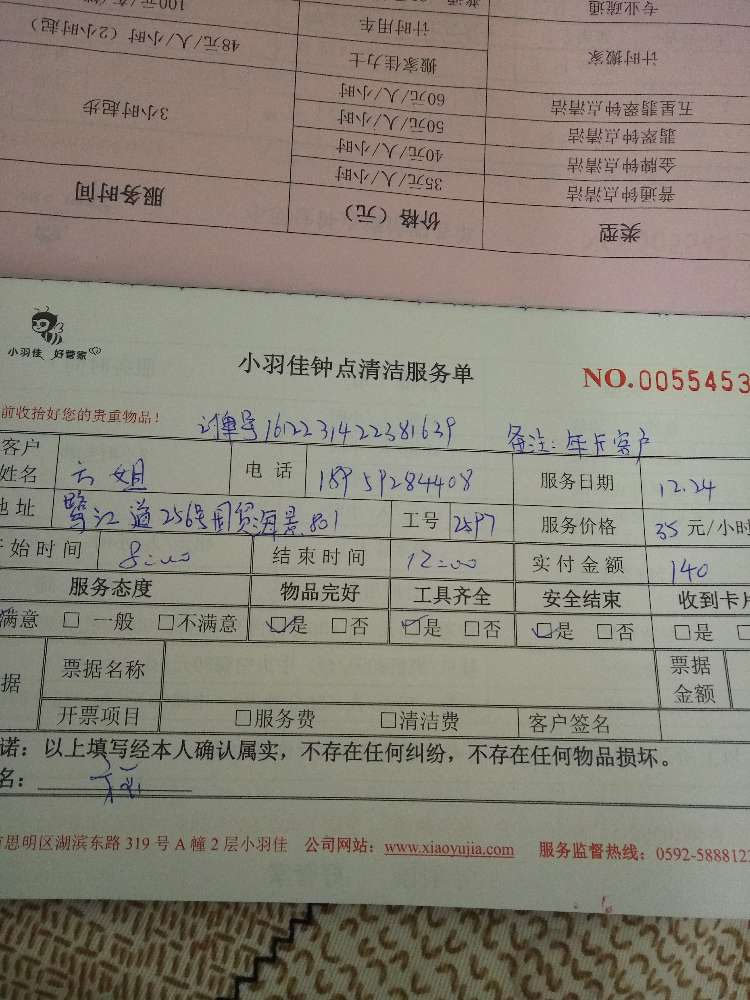 类型 价格（元） 服务时间
普通钟点清洁 35元/人/小时 3小时起步
金牌钟点清洁 40元/人/小时
翡翠钟点清洁 50元/人/小时
五星翡翠钟点清洁 60元/人/小时
计时搬家 搬家佳力士 48元/人/小时（2小时起）
计时用车
专业疏通 100元/
小羽佳 好管家
小羽佳钟点清洁服务单
NO.0055453
前收拾好您的贵重物品！
订单号 1612231422381639 备注：年卡客户
客户姓名 方姐 电话 18959284408 服务日期 12.24
地址 鹭江道256号国贸海景801 工号 2597 服务价格 35 元/小时
开始时间 8:00 结束时间 12:00 实付金额 140
服务态度 物品完好 工具齐全 安全结束 收到卡片
满意 □ 一般 □不满意 ☑是 □否 ☑是 □否 ☑是 □否 □是 □
据 票据名称 票据金额
开票项目 □服务费 □清洁费 客户签名
诺：以上填写经本人确认属实，不存在任何纠纷，不存在任何物品损坏。
名：
思明区湖滨东路 319 号 A 幢 2 层小羽佳 公司网站：www.xiaoyujia.com 服务监督热线：0592-588812